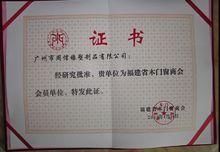 证书
广州市周信橡塑制品有限公司：
经研究批准，贵单位为福建省木门窗商会
会员单位，特发此证。
福建省木门窗商会